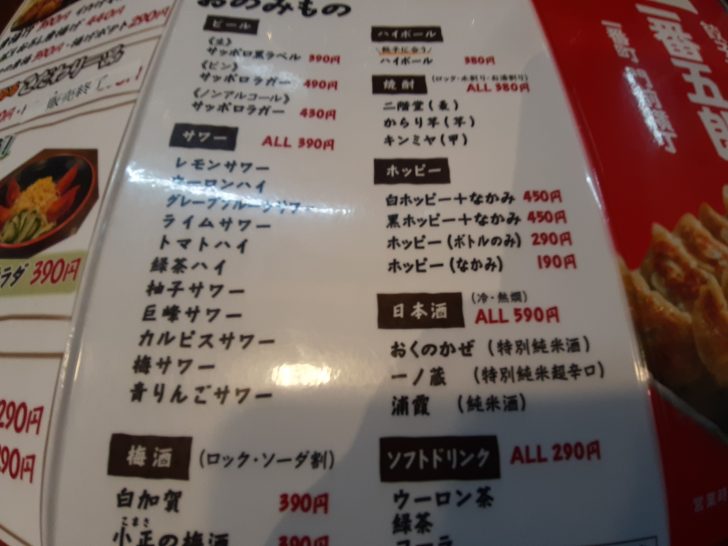 おのみもの
ビール
《生》
サッポロ黒ラベル 390円
《ビン》
サッポロラガー 490円
《ノンアルコール》
サッポロラガー 430円
サワー ALL 390円
レモンサワー
ウーロンハイ
グレープフルーツサワー
ライムサワー
トマトハイ
緑茶ハイ
柚子サワー
巨峰サワー
カルピスサワー
梅サワー
青りんごサワー
梅酒 (ロック・ソーダ割)
白加賀 390円
こまさ
小正の梅酒 390円
ハイボール
餃子に合う
ハイボール 380円
焼酎 (ロック・水割り・お湯割り)
ALL 380円
二階堂(麦)
からり芋(芋)
キンミヤ(甲)
ホッピー
白ホッピー+なかみ 450円
黒ホッピー+なかみ 450円
ホッピー(ボトルのみ) 290円
ホッピー(なかみ) 190円
日本酒 (冷・熱燗)
ALL 590円
おくのかぜ (特別純米酒)
一ノ蔵 (特別純米超辛口)
浦霞 (純米酒)
ソフトドリンク ALL 290円
ウーロン茶
緑茶
コーラ
販売終了
ラダ 390円
290円
290円
一番五郎
一番町
営業時